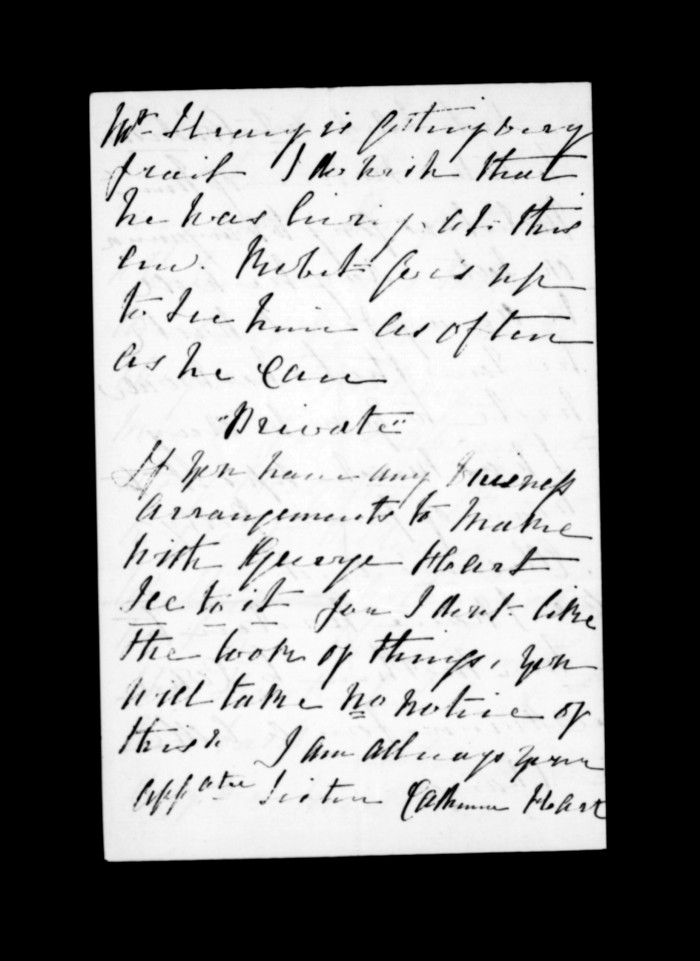 Mr Strang is getting very
frail I do wish that
he was living at this
end. Robert goes up
to see him as often
as he can
"Private"
If you have any business
arrangements to make
with George Heart
See to it for I dont like
the look of things, you
will take no notice of
this. I am allways your
affate sister Catherine Heart